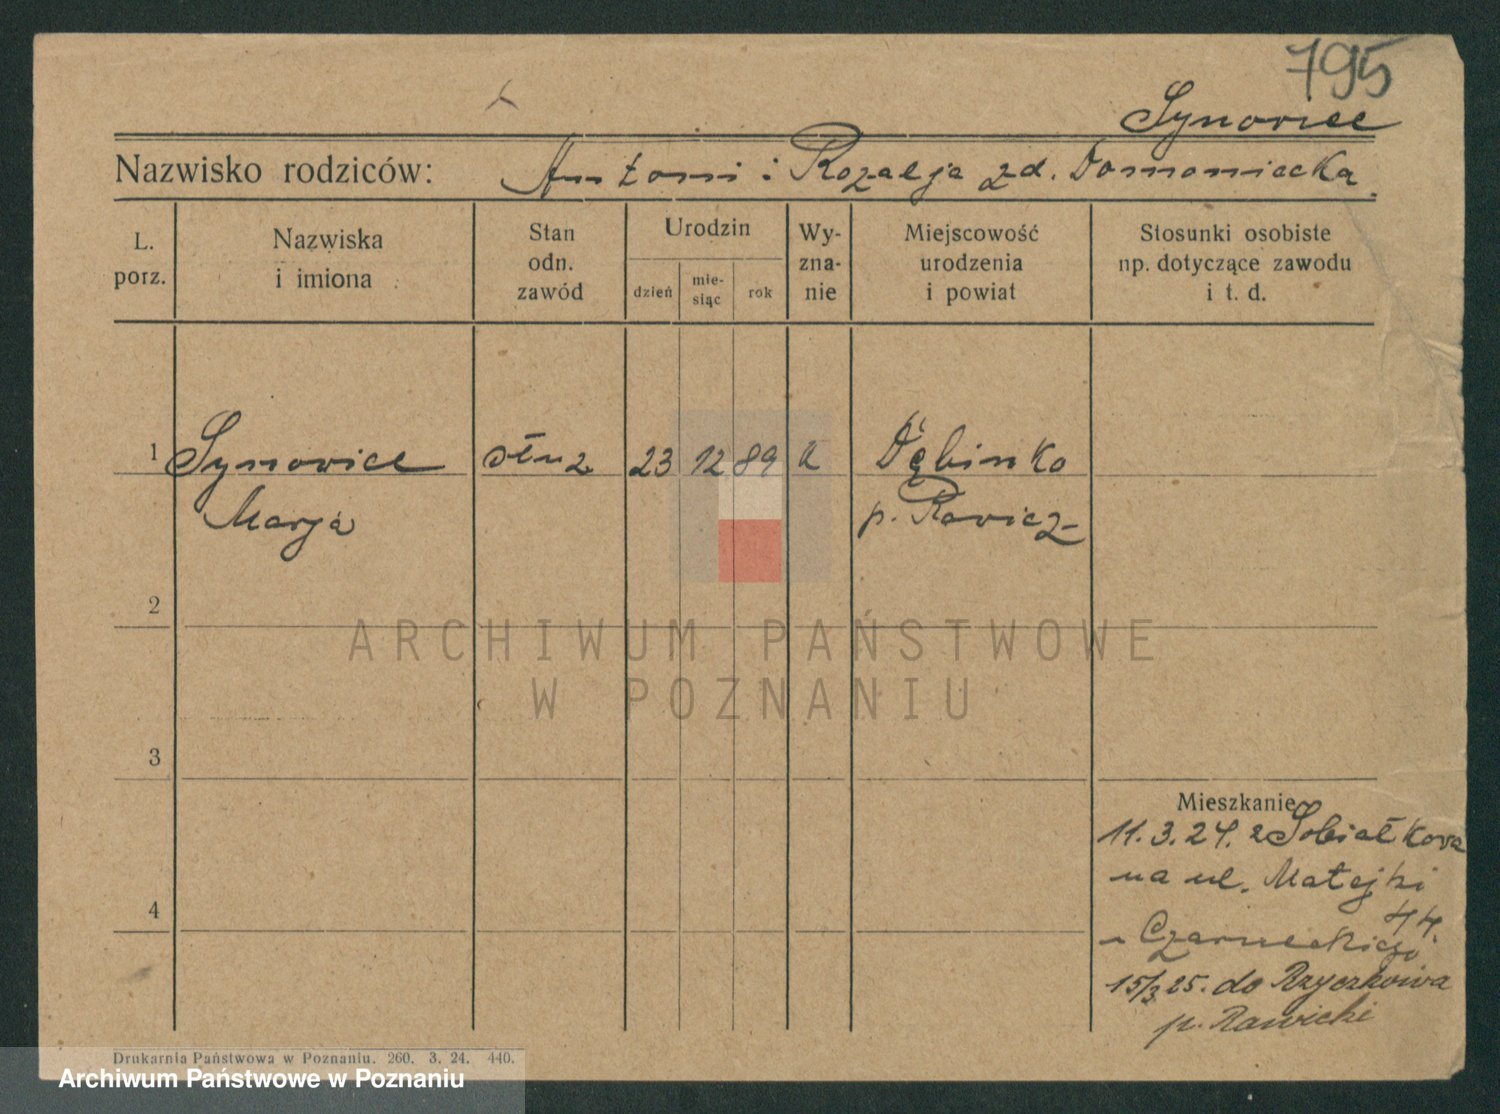 795
Synoviec
Nazwisko rodziców: Antoni i Rozalja zd. Domoniecka.
L. porz.
Nazwiska i imiona
Stan odn. zawód
Urodzin
dzień
mie-siąc
rok
Wy-zna-nie
Miejscowość urodzenia i powiat
Stosunki osobiste np. dotyczące zawodu i t. d.
1 Synoviec służ. 23 12 89 k Dębinko
Marja p. Rawicz
2
ARCHIWUM PAŃSTWOWE
W POZNANIU
3
Mieszkanie
11.3.24. z Sobiałkowa
na ul. Matejki
44.
" Czarnieckiego
15/3 25. do Rzyczkowa
p. Rawicki
4
Drukarnia Państwowa w Poznaniu. 260. 3. 24. 440.
Archiwum Państwowe w Poznaniu